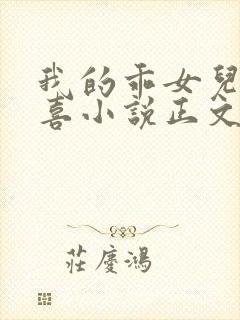 我的乖女兒
喜小說正文
莊慶鴻